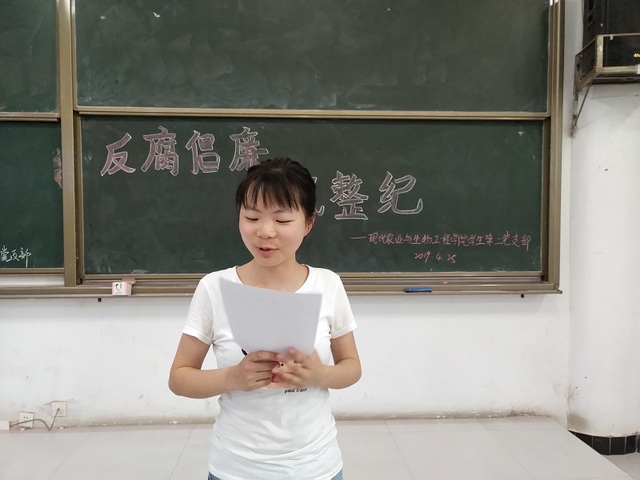 反腐倡廉
整纪
——现代农业与生物工程学院学生第二党支部
2019.4.25
党支部